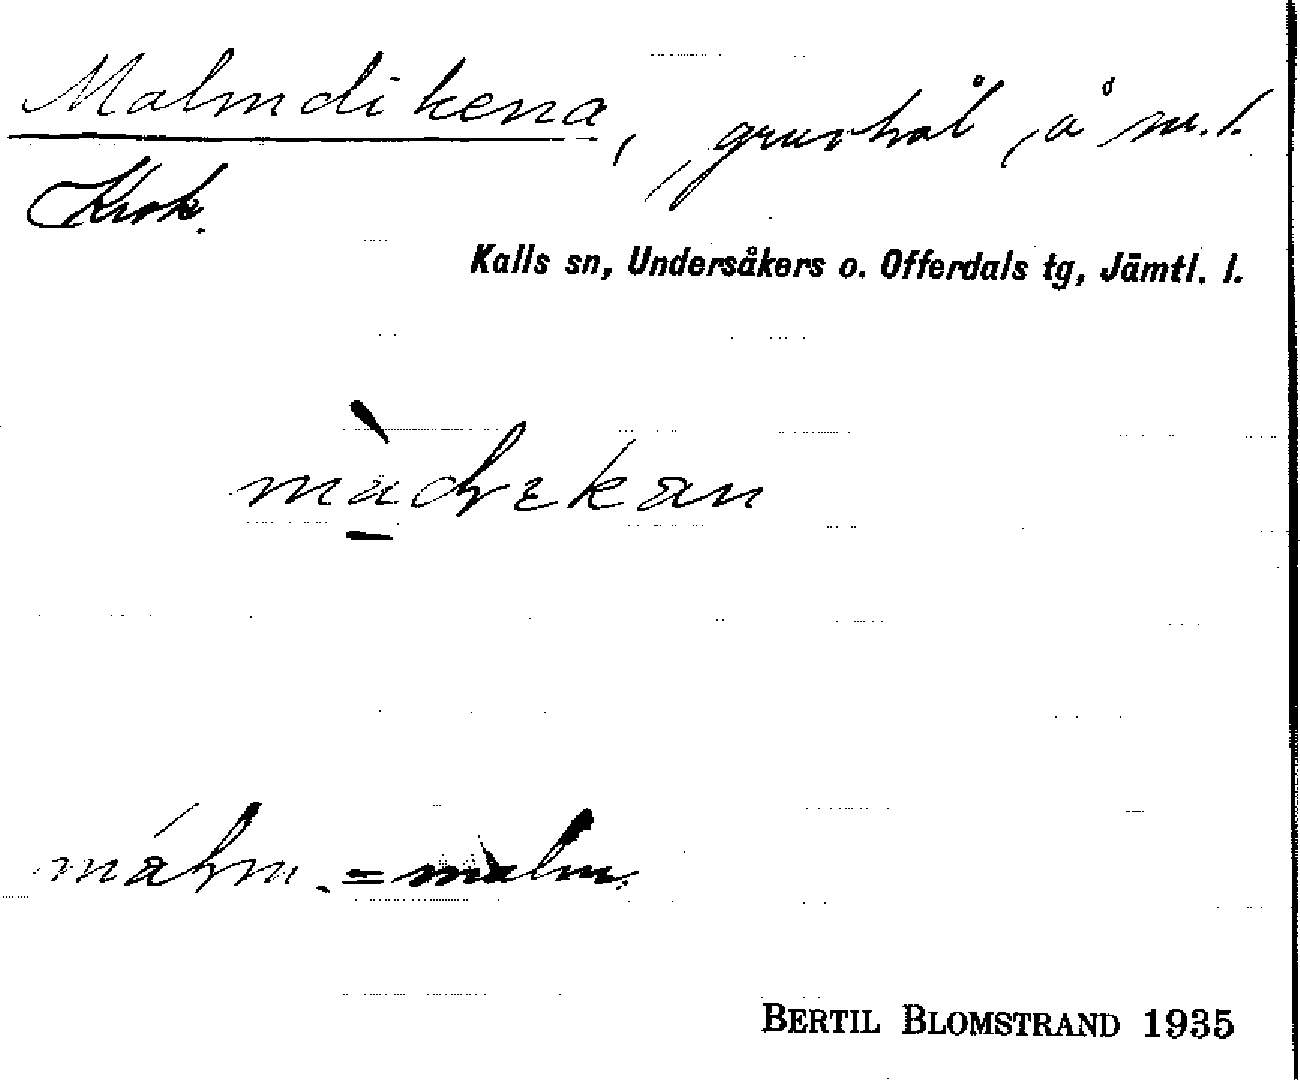 Malmdikena, gruvhål å m.l.
Krok.
Kalls sn, Undersåkers o. Offerdals tg, Jämtl. l.
malm. = malm.
BERTIL BLOMSTRAND 1935